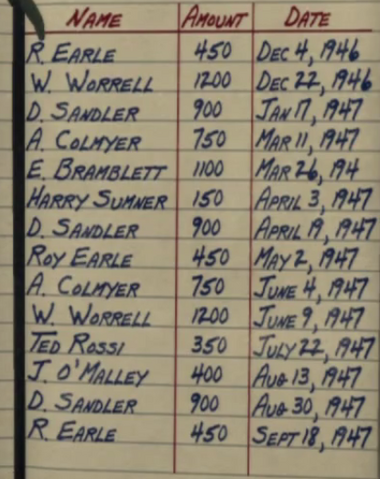 NAME AMOUNT DATE
R. EARLE 450 DEC 4, 1946
W. WORRELL 1200 DEC 22, 1946
D. SANDLER 900 JAN 17, 1947
A. COLMYER 750 MAR 11, 1947
E. BRAMBLETT 1100 MAR 26, 194
HARRY SUMNER 150 APRIL 3, 1947
D. SANDLER 900 APRIL 19, 1947
ROY EARLE 450 MAY 2, 1947
A. COLMYER 750 JUNE 4, 1947
W. WORRELL 1200 JUNE 9, 1947
TED ROSSI 350 JULY 22, 1947
J. O'MALLEY 400 AUG 13, 1947
D. SANDLER 900 AUG 30, 1947
R. EARLE 450 SEPT 18, 1947